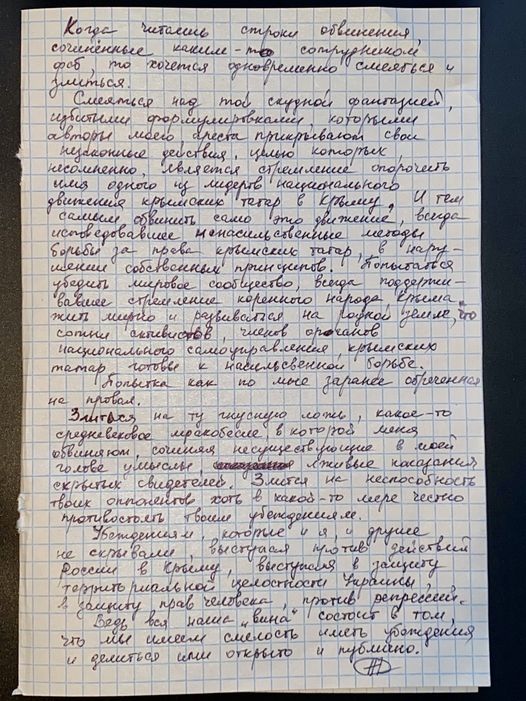 Когда читаешь строки обвинения,
сочинённые каким-то сотрудником
фсб, то хочется одновременно смеяться и
злиться.
Смеяться над той скудной фантазией,
избитыми формулировками, которыми
авторы моего ареста прикрывают свои
незаконные действия, целью которых,
несомненно, является стремление опорочить
имя одного из лидеров национального
движения крымских татар в Крыму. И тем
самым обвинить само это движение, всегда
исповедовавшее ненасильственные методы
борьбы за права крымских татар, в нару-
шении собственных принципов. Попытаться
убедить мировое сообщество, всегда поддержи-
вавшее стремление коренного народа Крыма
жить мирно и развиваться на родной земле, что
сотни активистов, членов органов
национального самоуправления крымских
татар готовы к насильственной борьбе.
Попытка как по мне заранее обреченная
на провал.
Злиться на ту гнусную ложь, какое-то
средневековое мракобесие, в которой меня
обвиняют, сочиняя несуществующие в моей
голове умыслы, лживые показания
скрытых свидетелей. Злится на неспособность
твоих оппонентов хоть в какой-то мере честно
противостоять твоим убеждениям.
Убеждениям, которые и я, и другие
не скрывали, выступая против действий
России в Крыму, выступая в защиту
территориальной целостности Украины,
в защиту прав человека, против репрессий.
Ведь вся наша „вина" состоит в том,
что мы имеем смелость иметь убеждения
и делиться ими открыто и публично.